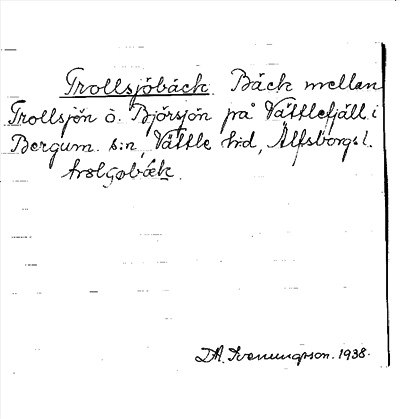 Trollsjöbäck. Bäck mellan
Trollsjön o. Björsjön på Vättlefjäll i
Bergum s:n, Vättle hd, Älfsborgs l.
D.A. Svenungsson. 1938.